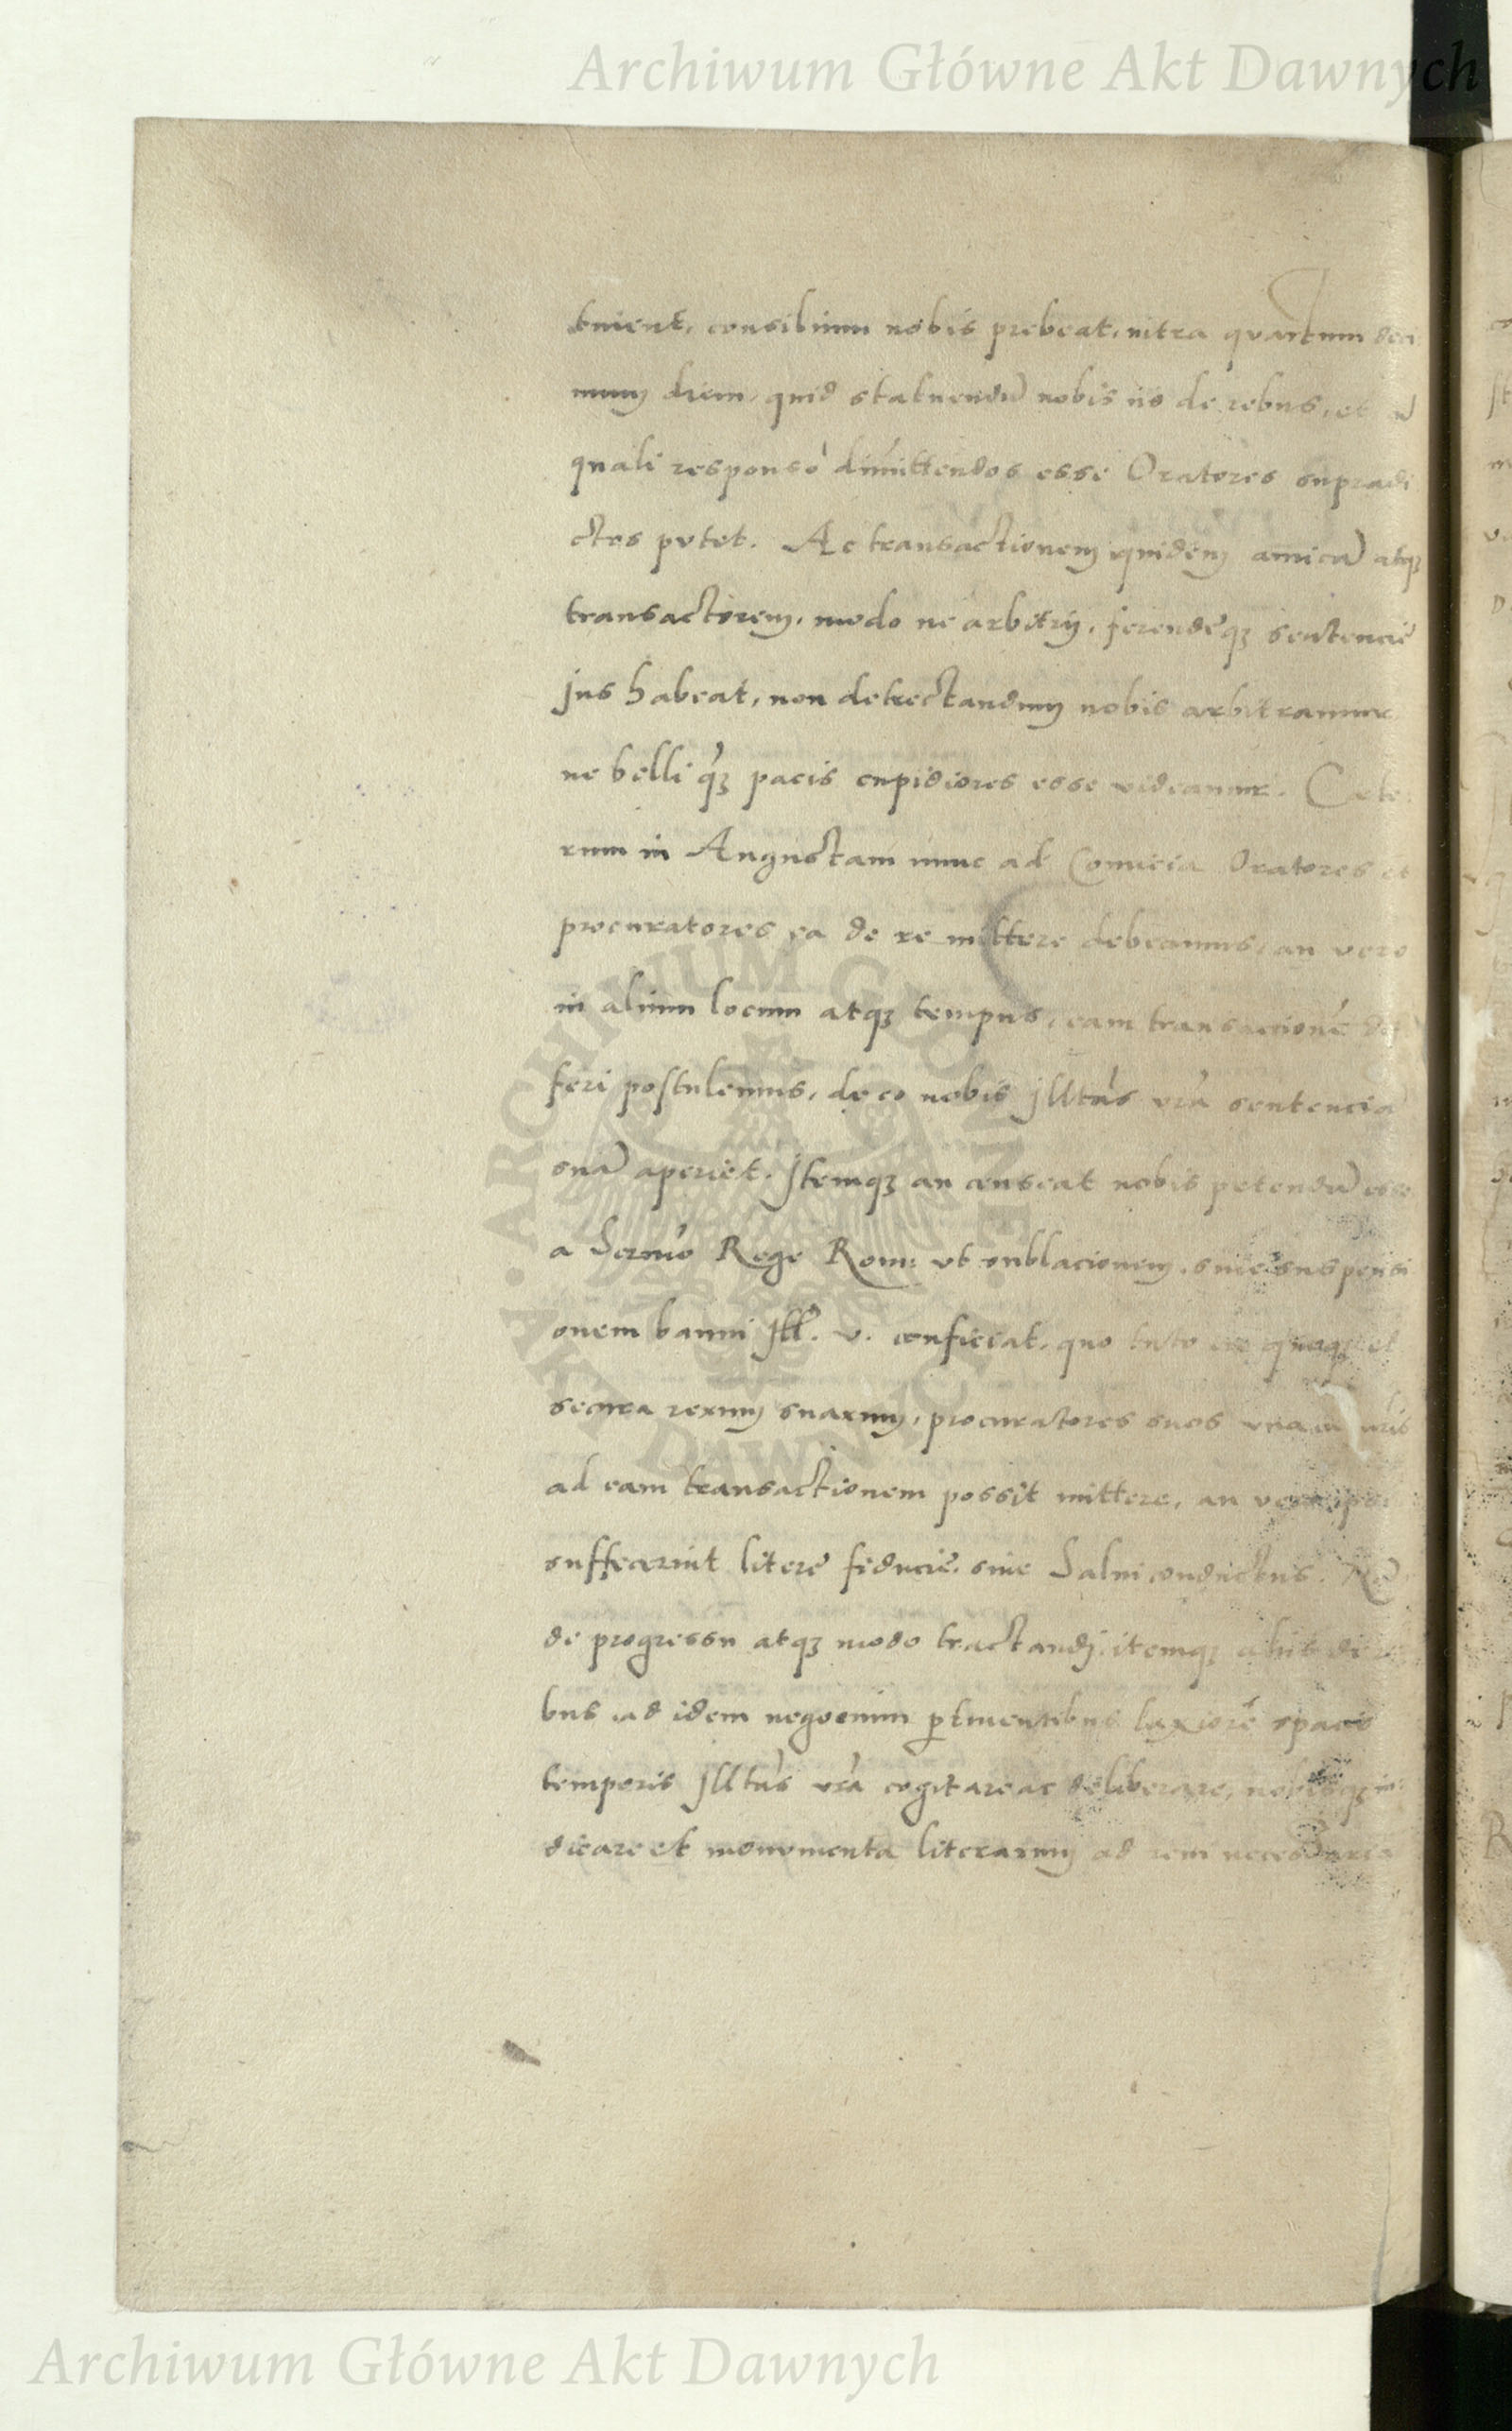 Archiwum Główne Akt Dawnych
tuient, consilium nobis prebeat, nitra quartum deci
mum diem, quid statuendū nobis iis de rebus, et cū
quali responso dimittendos esse Oratores supradi
ctos putet. Ac transactionem quidem amicā atqȝ
transactorem, modo ne arbitrij, ferendęqȝ sentencię
jus habeat, non detrectandum nobis arbitramur
ne belli qȝ pacis cupidiores esse videamur. Cete
rum in Augustam nunc ad Comicia Oratores et
procuratores ea de re mittere debeamus, an vero
in alium locum atqȝ tempus, eam transactionē dif
feri postulemus, de eo nobis Illtas vra sentenciā
suā aperiet. Itemqȝ an censeat nobis petendū esse
a Sermo Rege Rom: vt sublacionem, siue suspensi
onem banni Ill. v. conficiat, quo tuto
secura rerum suarum, procuratores suos vna cū nris
ad eam transactionem possit mittere, an vero
suffecerint literę fiducię, siue Salui conductus. Nā
de progressu atqȝ modo tractandi, itemqȝ aliis de re
bus ad idem negocium ptinentibus laxiore spacio
temporis Illtas vra cogitare ac deliberare, nobisqȝ in
dicare et monumenta literarum ad rem necessaria
ARCHIWUM GŁÓWNE AKT DAWNYCH
Archiwum Główne Akt Dawnych